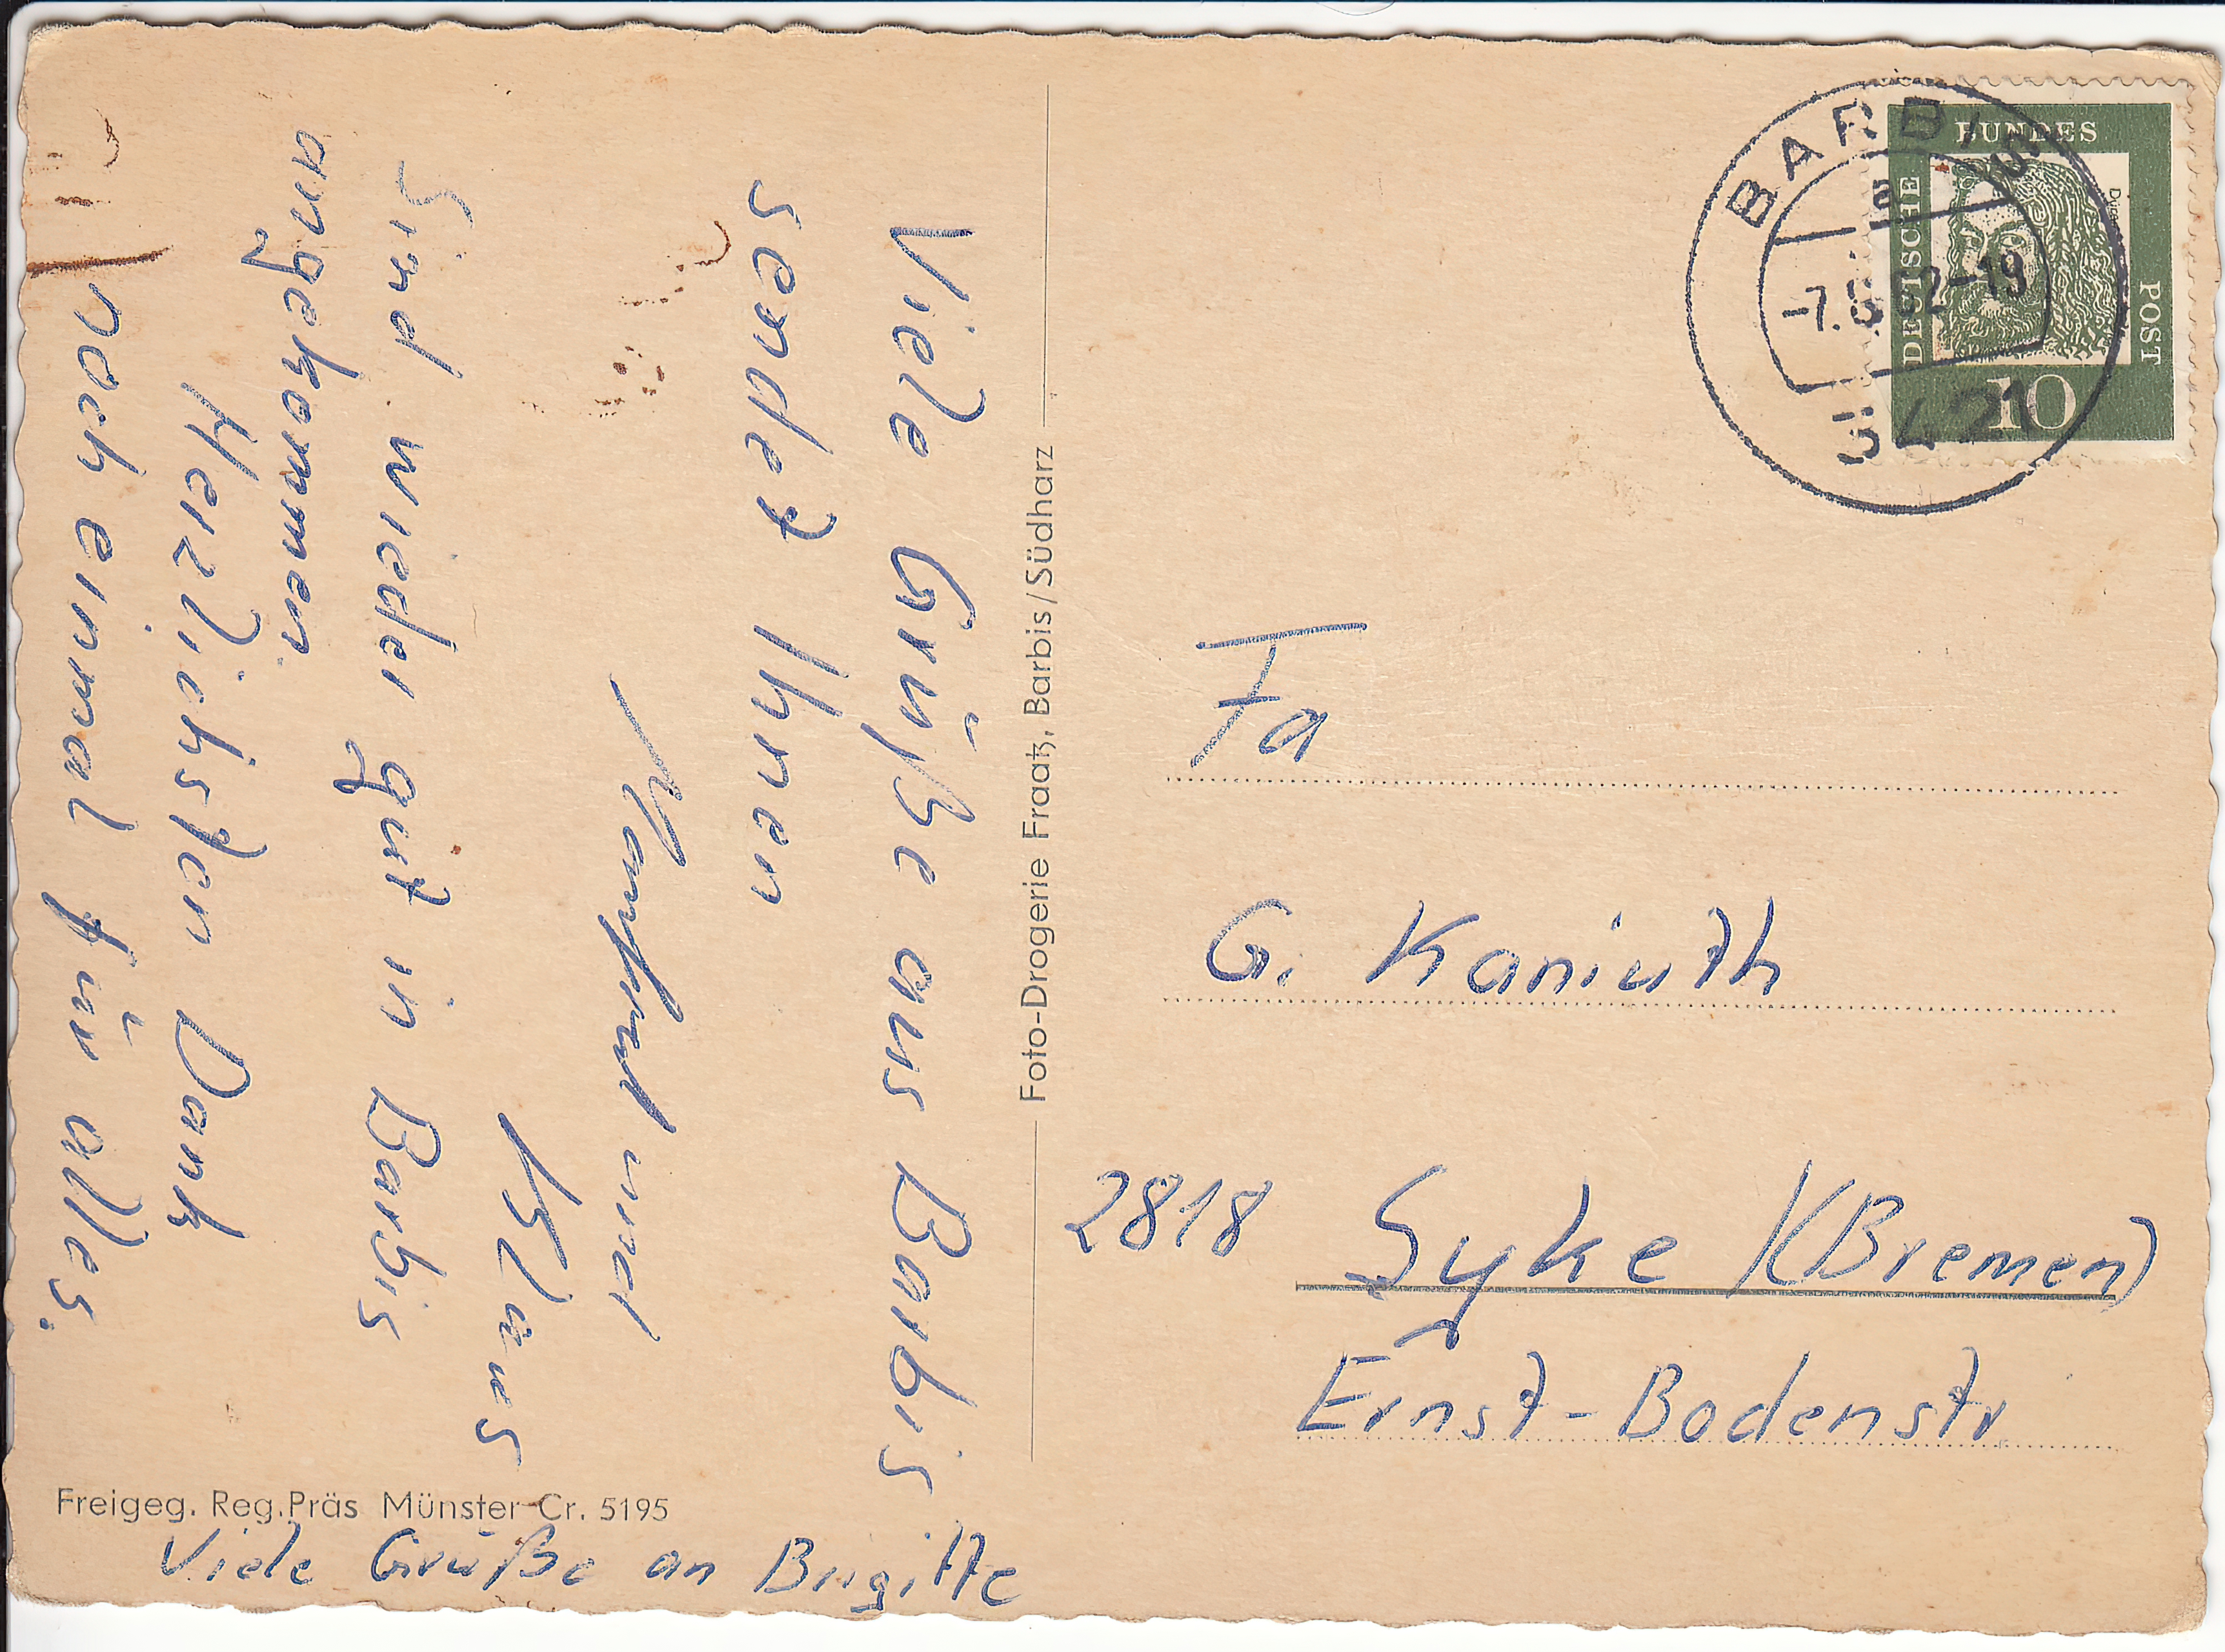 Viele Grüße aus Barbis
sendet Ihnen
und
Klaus
Sind wieder gut in Barbis
angekommen
Herzlichsten Dank
noch einmal für alles.
Freigeg. Reg.Präs Münster Cr. 5195
Viele Grüße an Brigitte
Foto-Drogerie Fraatz, Barbis/Südharz
BARBIS
a
3421
DEUTSCHE
BUNDES
POST
10
Fa
G. Kaniuth
2818 Syke /(Bremen)
Ernst-Bodenstr